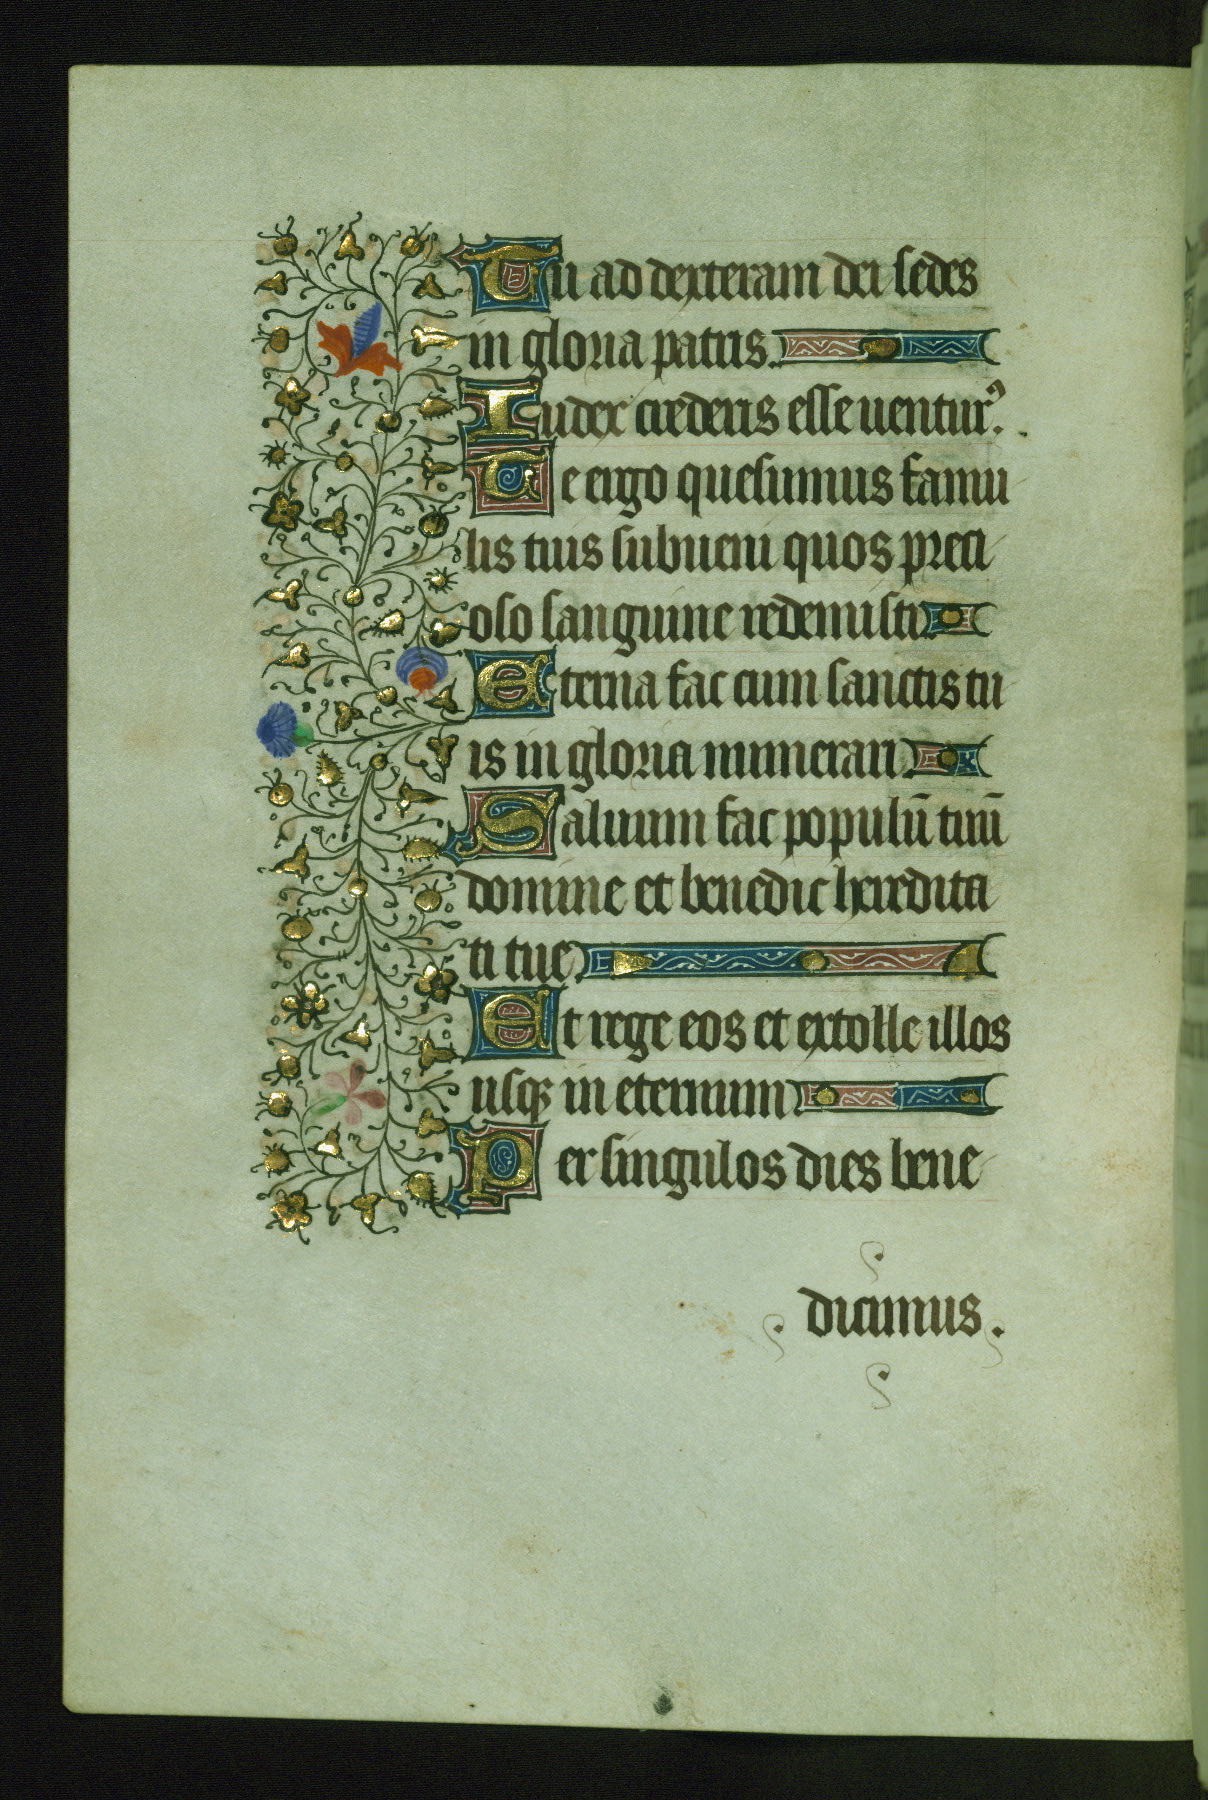 Tu ad dexteram dei sedes
in gloria patris.
Iudex crederis esse uentur⁹.
Te ergo quesumus famu
lis tuis subueni quos preci
oso sanguine redemisti
Eterna fac cum sanctis tu
is in gloria numerari
Saluum fac populū tuū
domine et benedic heredita
ti tue
Et rege eos et extolle illos
usqꝫ in eternum
Per singulos dies bene
dicimus.